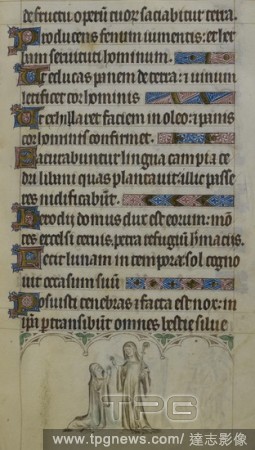 de fructu operū tuoꝝ saciabitur terra.
Producens fenum iumentis: et her
bam seruituti hominum.
Et educas panem de terra: ⁊ uinum
letificet cor hominis
Et exhillaret faciem in oleo: ⁊ panis
cor hominis confirmet.
Saturabuntur ligna campi ⁊ ce
dri libani quas plantauit: illic passe
res nidificabūt.
Herodij domus dux est eorum: mō
tes excelsi ceruis, petra refugiū h̓inacijs.
Fecit lunam in tempora: sol cogno
uit occasum suū
Posuisti tenebras ⁊ facta est nox: in
ip̄a ꝑtransibūt omnes bestie silue
TPG
www.tpgnews.com/達志影像